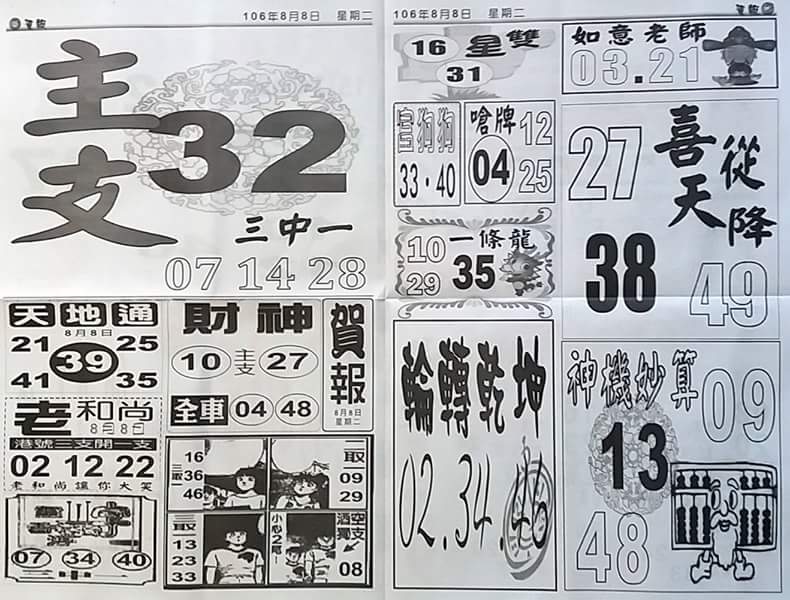 106年8月8日 星期二
主支
32
三中一
07 14 28
天地通
8月8日
21 25
39
41 35
老和尚
8月8日
港號三支開一支
02 12 22
老和尚讓你大笑
07 34 40
財神
10 主支 27
全車 04 48
賀報
8月8日
星期二
16
三取 36
46
二取
09
29
三取
13
23
33
小心2尾!
空支
08
106年8月8日 星期二
16 星雙
31
宮狗狗
33.40
嗆牌 12
04 25
一條龍
10
29 35
輪轉乾坤
02.34.46
如意老師
03.21
27 喜從天降
38 49
神機妙算
09
13
48